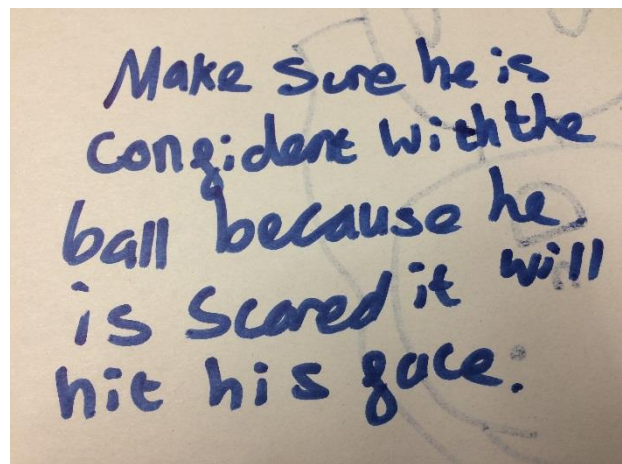 Make Sure he is
confident with the
ball because he
is Scared it will
hit his face.